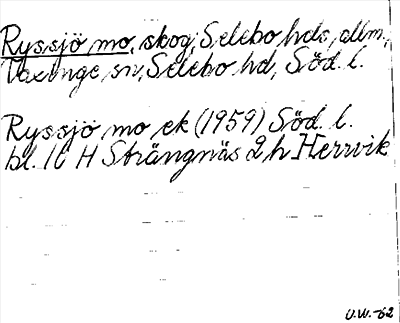 Ryssjö mo, skog, Selebo hds, allm.,
Taxinge sn, Selebo hd, Söd. l.
Ryssjö mo ek (1959) Söd. l.
bl. 10 H Strängnäs 2 h Herrvik
U.W.-62